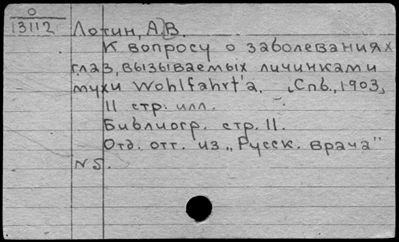 О
13112
Лотин, А.В.
К вопросу о заболеваниях
глаз, вызываемых личинками
мухи Wohlfahrt'a. Спб., 1903,
11 стр. илл.
Библиогр. стр. 11.
Отд. отт. из „Русск. врача"
N 5.